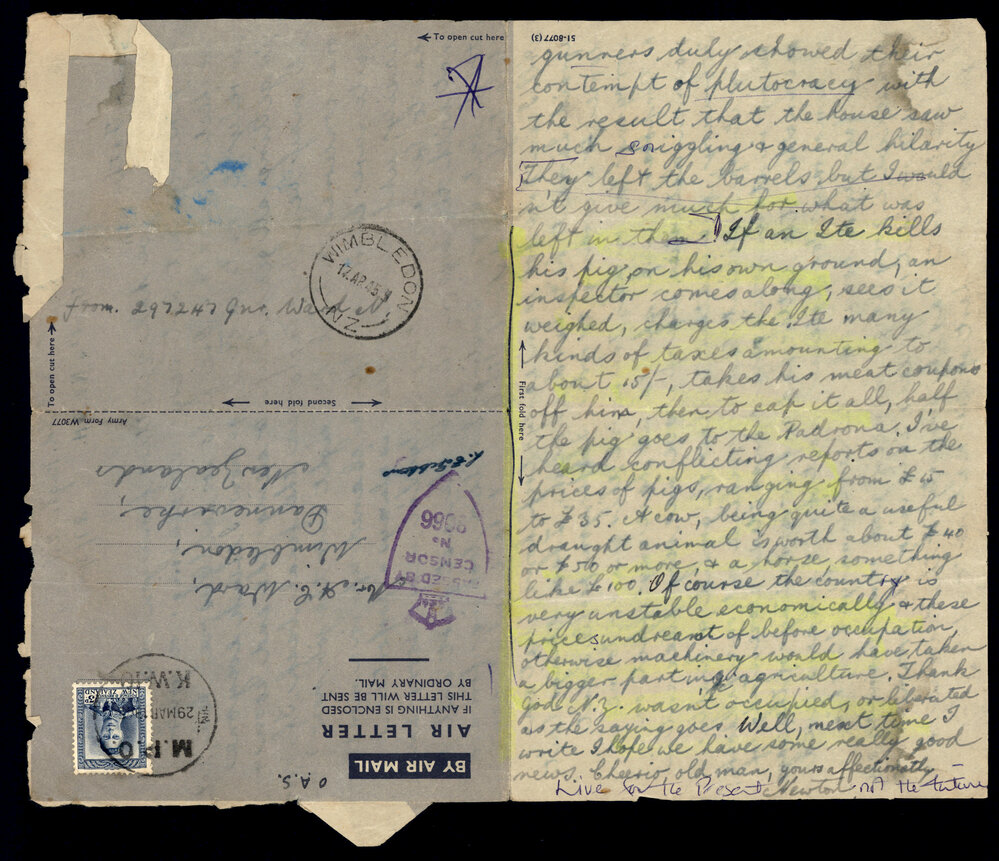 To open cut here
51-8077 (3)
gunners duly showed their
contempt of plutocracy with
the result that the house saw
much sniggling & general hilarity
They left the barrels but I would
n't give much for what was
left in them. If an Ite kills
his pig on his own ground, an
inspector comes along, sees it
weighed, charges the Ite many
kinds of taxes amounting to
about 15/-, takes his meat coupons
off him, then to cap it all, half
the pig goes to the Padrona. I've
heard conflicting reports on the
prices of pigs, ranging from £15
to £35. A cow, being quite a useful
draught animal is worth about £40
or £50 or more, & a horse, something
like £100. Of course the country is
very unstable economically & these
prices undreamt of before occupation,
otherwise machinery would have taken
a bigger part in agriculture. Thank
God N.Z. wasn't occupied, or liberated
as the saying goes. Well, next time I
write I hope we have some really good
news. Cheerio old man, yours affectionately
Newton
Live for the Present not the future
First fold here
WIMBLEDON
17 AP 45
N.Z.
from 292742 Gnr. Ward N
To open cut here
Second fold here
Army Form W3077
BY AIR MAIL
AIR LETTER
IF ANYTHING IS ENCLOSED
THIS LETTER WILL BE SENT
BY ORDINARY MAIL.
O.A.S.
M.P.O.
29 MAR
K.W.
PASSED BY
CENSOR
No
Mr. H. C. Ward,
Wimbledon,
Dannevirke,
New Zealand